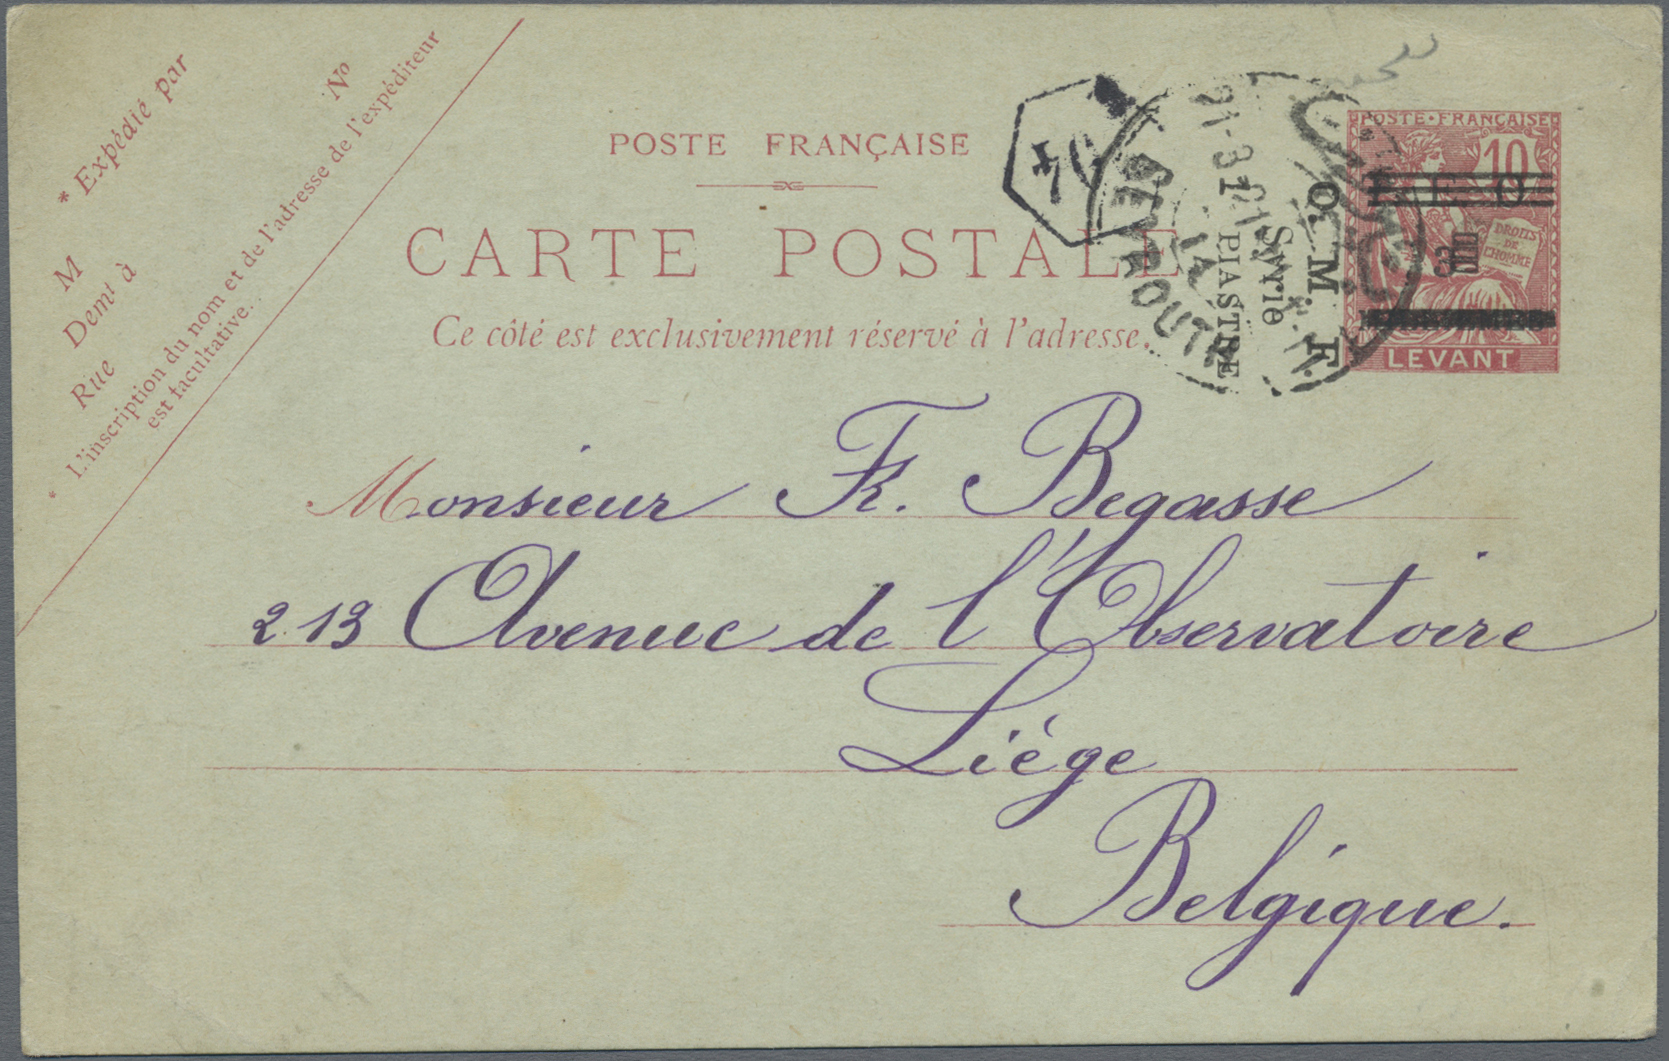 * Expédié par
N°
M
Demt à
Rue
* L'inscription du nom et de l'adresse de l'expéditeur
est facultative.
POSTE FRANÇAISE
CARTE POSTALE
Ce côté est exclusivement réservé à l'adresse.
BEYROUTH
O. M. F.
Syrie
PIASTRE
POSTE • FRANÇAISE
10
DROITS
DE
L'HOMME
LEVANT
Monsieur Fr. Begasse
213 Avenue de l'Observatoire
Liége
Belgique.